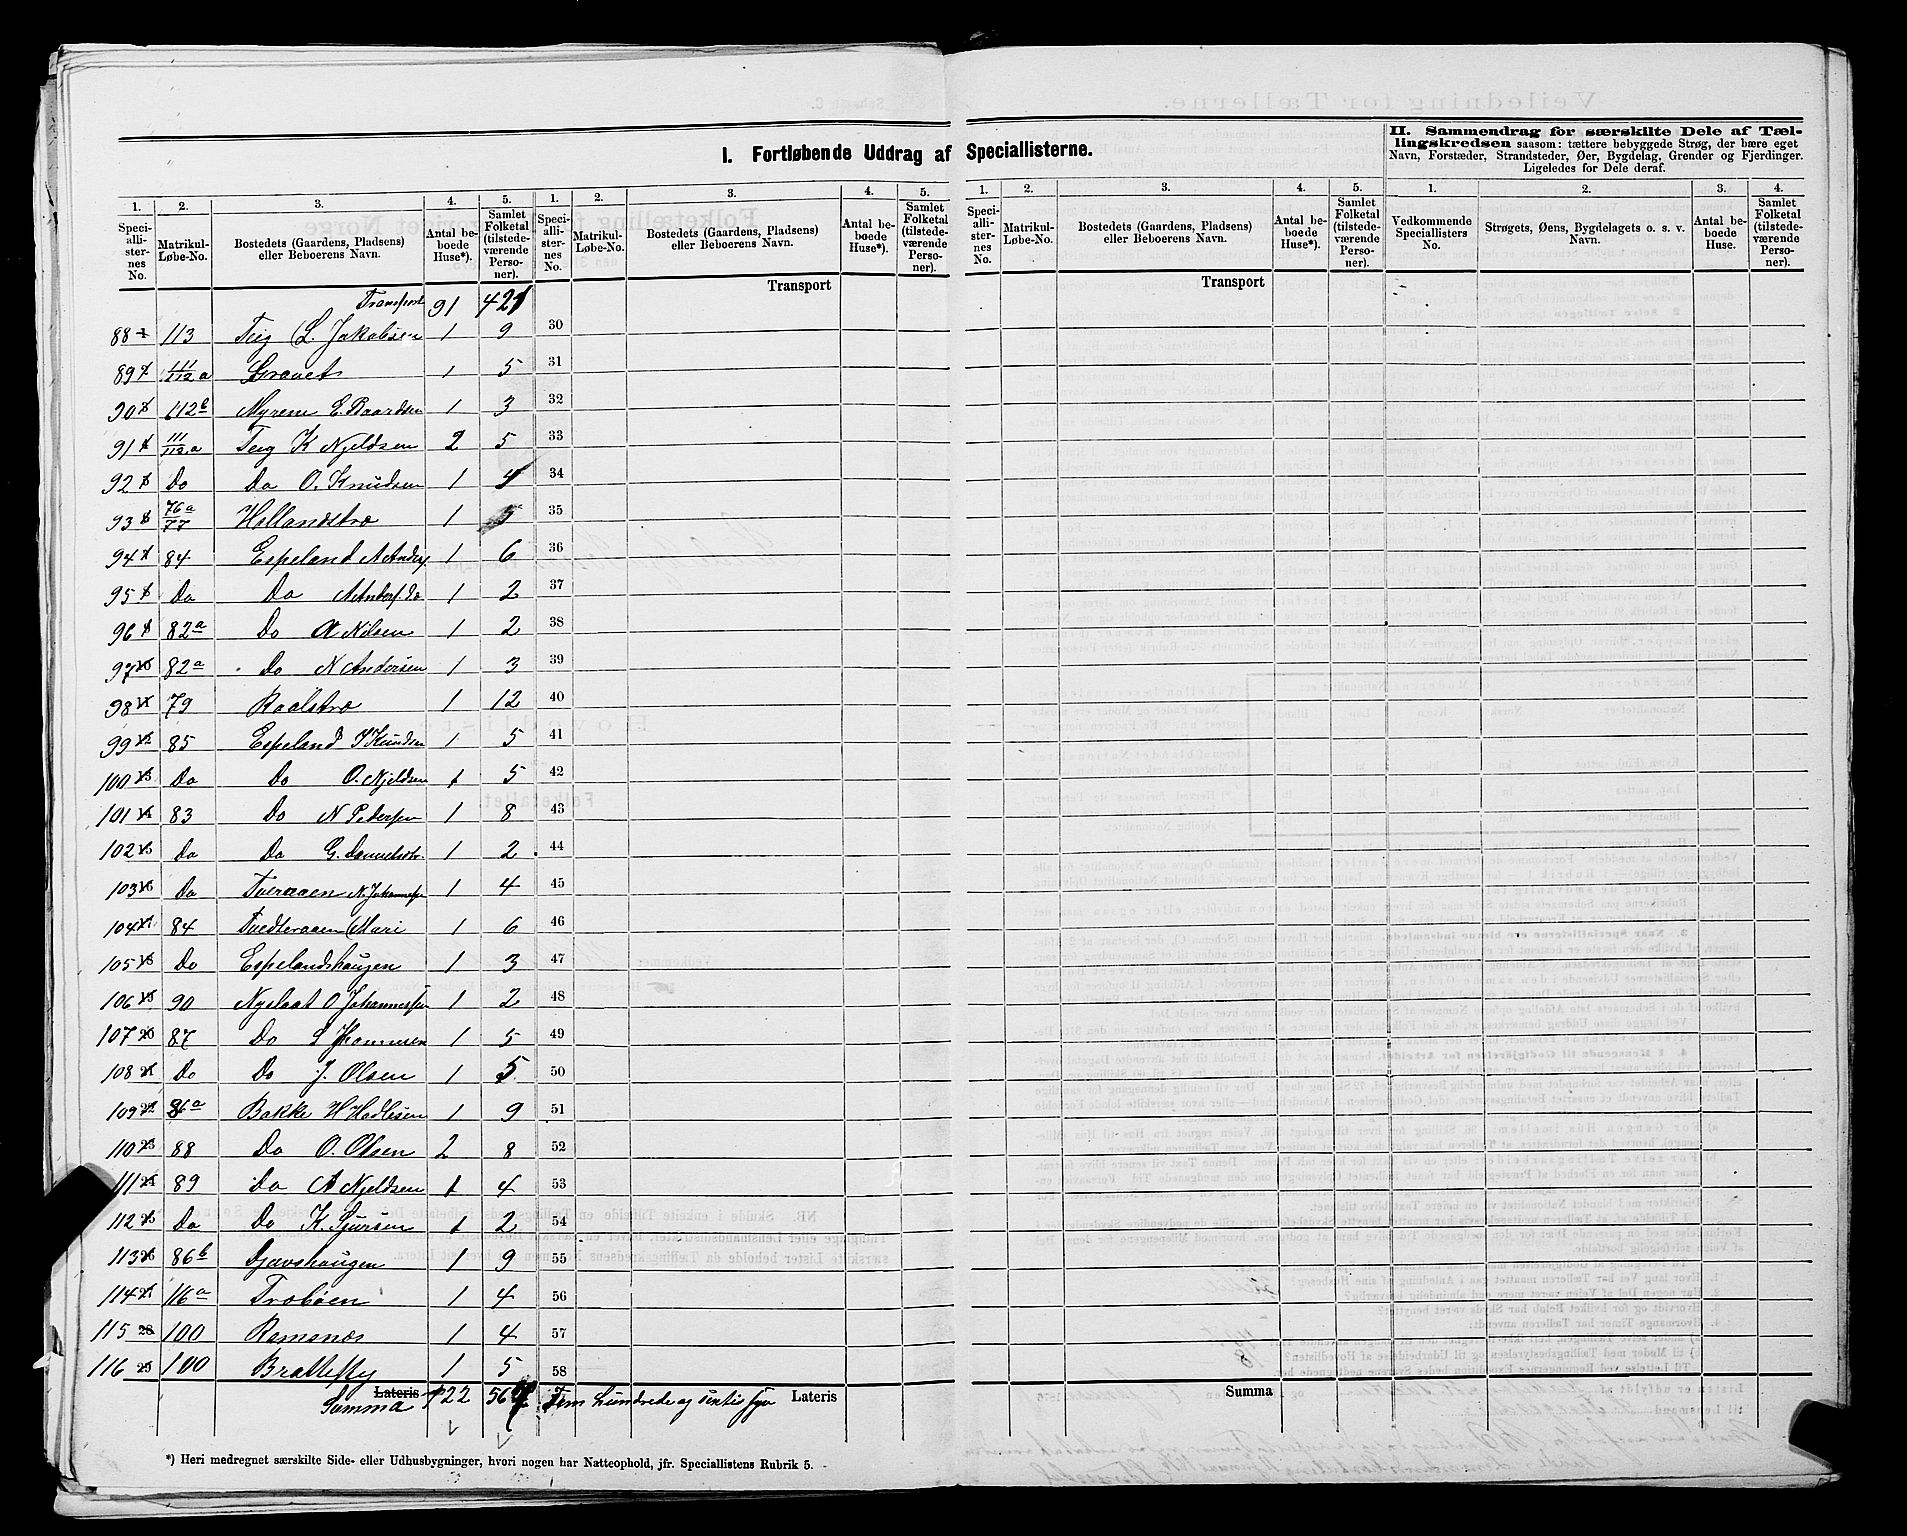 I. Fortløbende Uddrag af Speciallisterne.
II. Sammendrag for særskilte Dele af Tæl-
lingskredsen saasom: tættere bebyggede Strøg, der bære eget
Navn, Forstæder, Strandsteder, Øer, Bygdelag, Grender og Fjerdinger.
Ligeledes for Dele deraf.
1. 2. 3. 4. 5. 1. 2. 3. 4. 5. 1. 2. 3. 4. 5. 1. 2. 3. 4.
Speci-alli-ster-nes No. Matrikul-Løbe-No. Bostedets (Gaardens, Pladsens) eller Beboerens Navn. Antal be-boede Huse*). Samlet Folketal (tilstede-værende Perso-ner).
Speci-alli-ster-nes No. Matrikul-Løbe-No. Bostedets (Gaardens, Pladsens) eller Beboerens Navn. Antal be-boede Huse*). Samlet Folketal (tilstede-værende Perso-ner).
Speci-alli-ster-nes No. Matrikul-Løbe-No. Bostedets (Gaardens, Pladsens) eller Beboerens Navn. Antal be-boede Huse*). Samlet Folketal (tilstede-værende Perso-ner).
Vedkommende Speciallisters No. Strøgets, Øens, Bygdelagets o. s. v. Navn. Antal be-boede Huse. Samlet Folketal (tilstede-værende Perso-ner).
Transport 91 421 Transport Transport
88 113 Teig (L. Jakobsen 1 9 30
89 111/112 a Gravet 1 5 31
90 112b Myrene E. Baardsen 1 3 32
91 111/112 a Teig K Njeldsen 2 5 33
92 Do Do O. Knudsen 1 4 34
93 76a/77 Hollandstræ 1 5 35
94 84 Espeland A Anders 1 6 36
95 Do Do 1 2 37
96 82a Do A Nilsen 1 2 38
97 82a Do N Andersen 1 3 39
98 79 1 12 40
99 85 Espeland Knudsen 1 5 41
100 Do Do O. Njeldsen 1 5 42
101 83 Do N Pedersen 1 8 43
102 Do Do G. 1 2 44
103 Do Tveraaen N. Johannesse 1 4 45
104 84 Tvedteraaen (Mari 1 6 46
105 Do Espelandshaugen 1 3 47
106 90 Nyslaat O Johannessen 1 2 48
107 20 87 Do 1 5 49
108 Do Do J. Olsen 1 5 50
109 86a Bakke H Hadlesen 1 9 51
110 88 Do O. Olsen 2 8 52
111 89 Do A Njeldsen 1 4 53
112 Do Do K. Sjursen 1 2 54
113 86b Djavshaugen 1 9 55
114 116a Træbøen 1 4 56
115 28 100 Ramsnæs 1 4 57
116 29 100 Bratteste 1 5 58
Lateris Summa 122 567 Fem hundrede og sexti syv Lateris Summa
*) Heri medregnet særskilte Side- eller Udhusbygninger, hvori nogen har Natteophold, jfr. Speciallistens Rubrik 5.